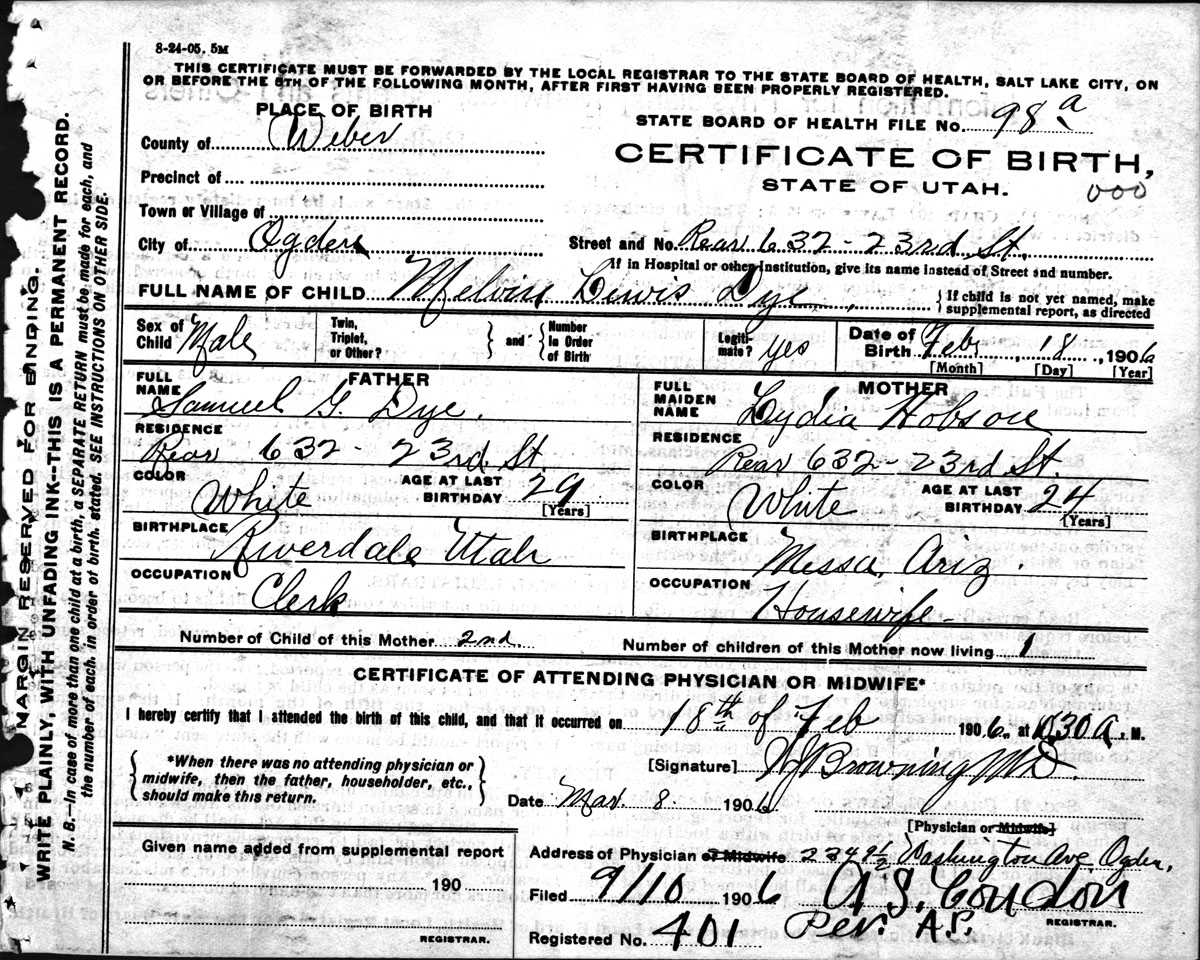 8-24-05. 5M
THIS CERTIFICATE MUST BE FORWARDED BY THE LOCAL REGISTRAR TO THE STATE BOARD OF HEALTH, SALT LAKE CITY, ON
OR BEFORE THE 5TH OF THE FOLLOWING MONTH, AFTER FIRST HAVING BEEN PROPERLY REGISTERED.
PLACE OF BIRTH
STATE BOARD OF HEALTH FILE No. 98 a
County of Weber
CERTIFICATE OF BIRTH,
STATE OF UTAH. 000
Precinct of
Town or Village of
City of Ogden
Street and No. Rear 632 - 23rd St.
If in Hospital or other Institution, give its name instead of Street and number.
FULL NAME OF CHILD Melvin Lewis Dye
{ If child is not yet named, make
supplemental report, as directed
Sex of Child Male
Twin, Triplet, or Other?
} and { Number In Order of Birth
Legiti- mate? yes
Date of Birth Feb, 18, 1906
[Month] [Day] [Year]
FATHER
FULL NAME Samuel G. Dye.
RESIDENCE
Rear 632 - 23rd St.
COLOR White
AGE AT LAST BIRTHDAY 29
[Years]
BIRTHPLACE Riverdale Utah
OCCUPATION Clerk
MOTHER
FULL MAIDEN NAME Lydia Hobson
RESIDENCE
Rear 632 - 23rd St.
COLOR White
AGE AT LAST BIRTHDAY 24
[Years]
BIRTHPLACE Messa, Ariz.
OCCUPATION Housewife
Number of Child of this Mother 2nd
Number of children of this Mother now living 1
CERTIFICATE OF ATTENDING PHYSICIAN OR MIDWIFE*
I hereby certify that I attended the birth of this child, and that it occurred on 18th of Feb 1906, at 30 A. M.
{ *When there was no attending physician or
midwife, then the father, householder, etc.,
should make this return. }
[Signature] Browning MD.
Date Mar. 8 1906
[Physician or Midwife]
Given name added from supplemental report
190
REGISTRAR.
Address of Physician or Midwife 2349 1/2 Washington Ave Ogden,
Filed 9/10 1906
REGISTRAR.
Registered No. 401 Per. A.P.
MARGIN RESERVED FOR BINDING.
WRITE PLAINLY, WITH UNFADING INK--THIS IS A PERMANENT RECORD.
N. B.—In case of more than one child at a birth, a SEPARATE RETURN must be made for each, and
the number of each, in order of birth, stated. SEE INSTRUCTIONS ON OTHER SIDE.